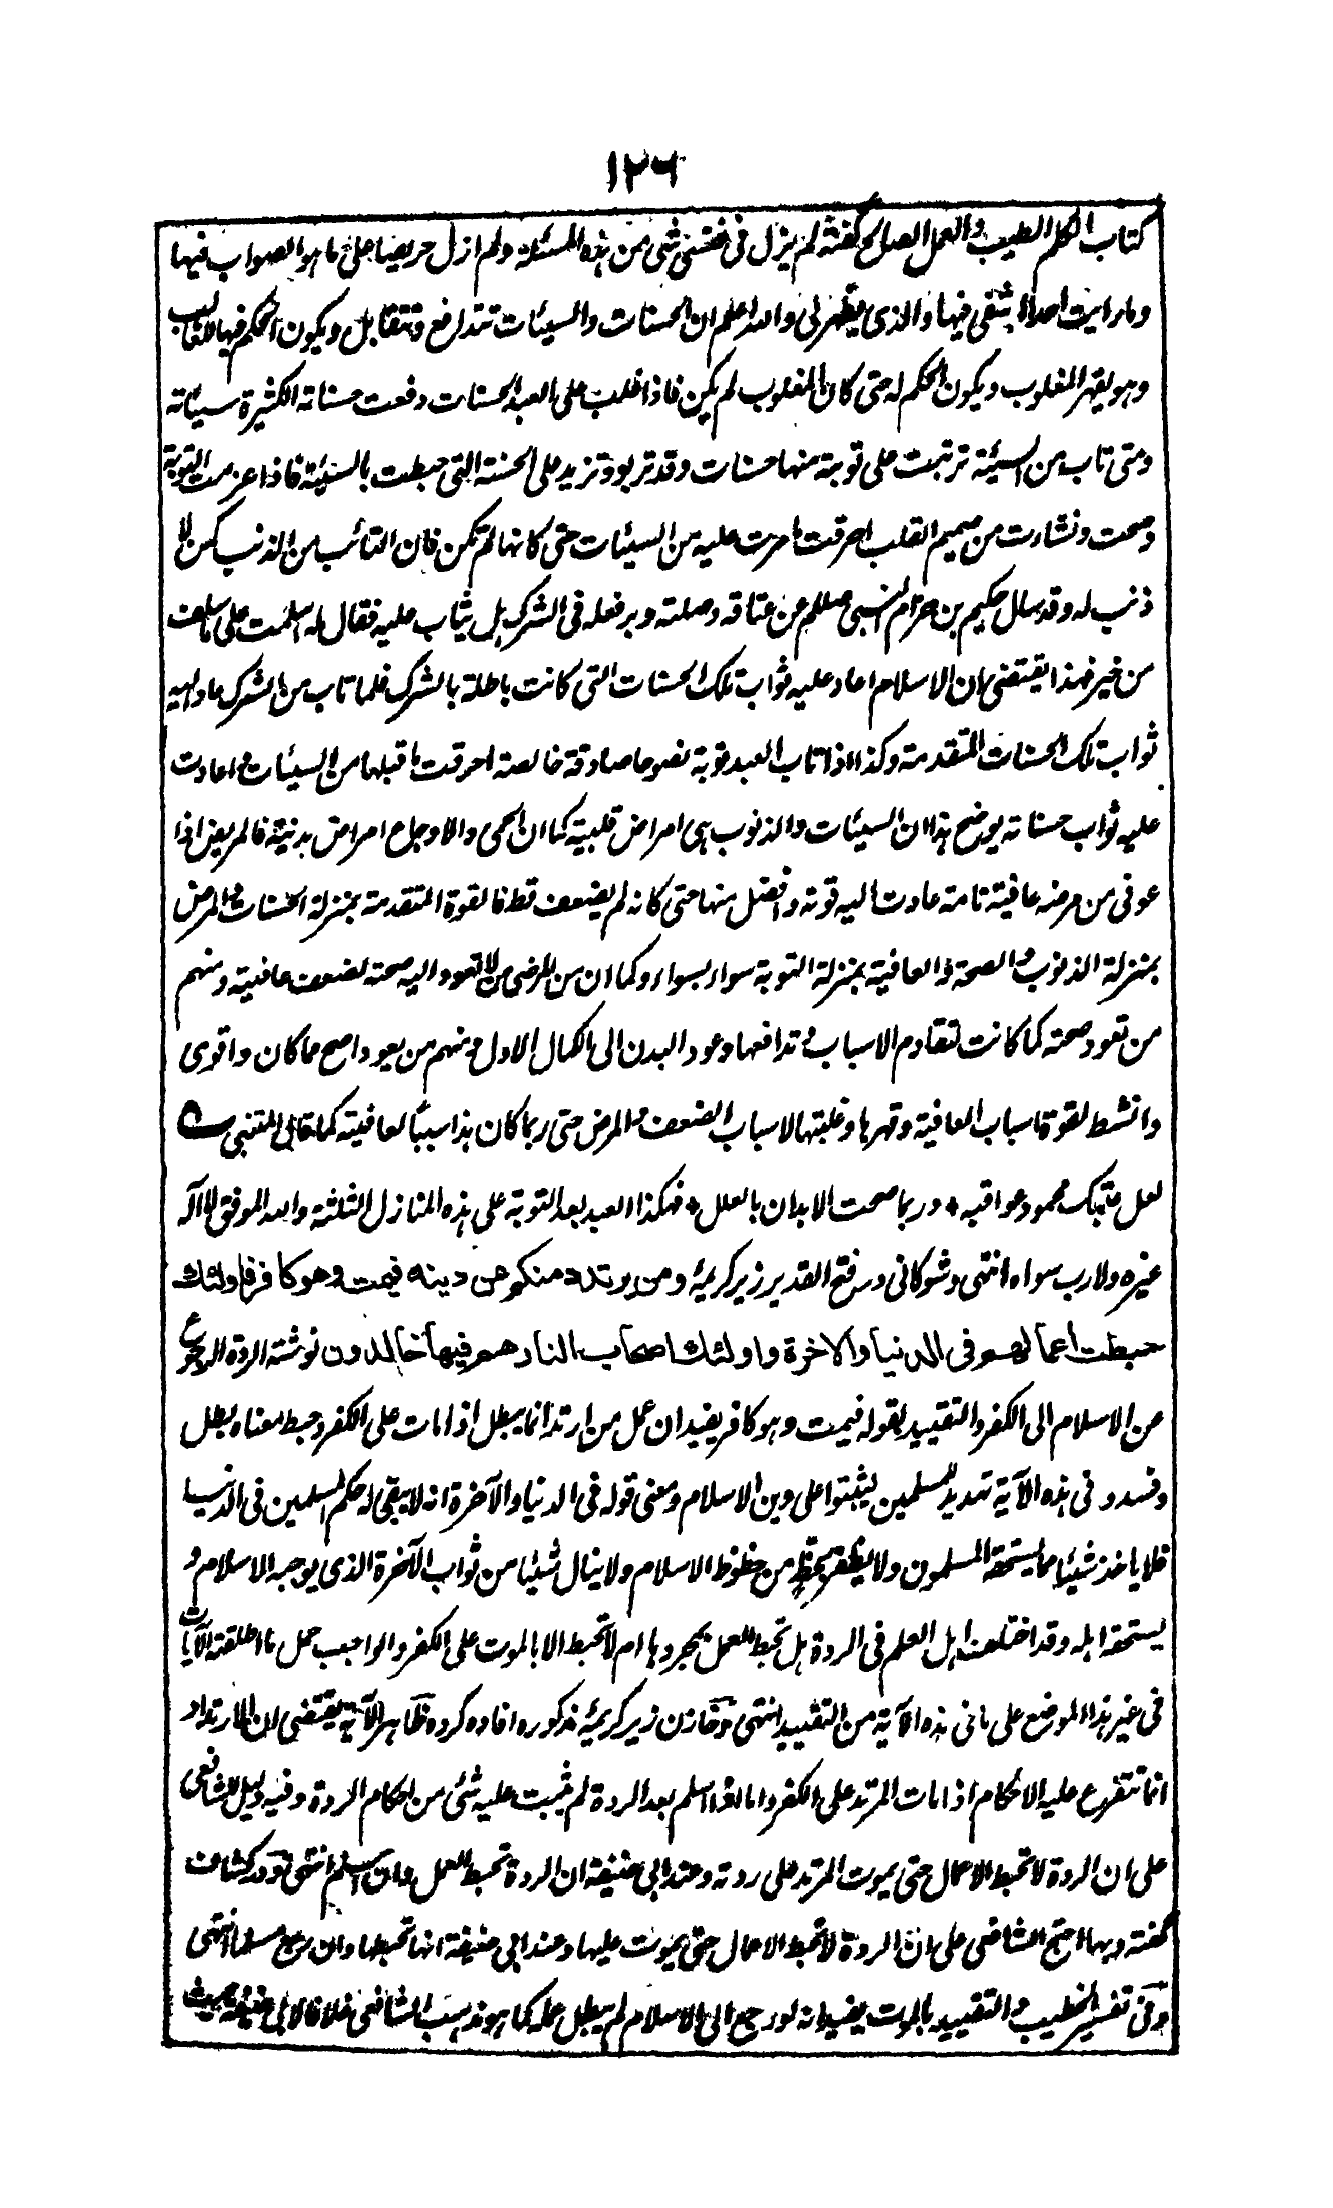 ١٢٦
كتاب الكلم الطيب والعمل الصالح گفته لم يزل فى نفسى شئ من هذه المسئلة ولم ازل حريصا على ما هو الصواب فيها
وما رايت احدا شفى فيها والذى يظهر لى والله اعلم ان الحسنات والسيئات تتدافع وتتقابل ويكون الحكم فيها للغالب
وهو يقهر المغلوب ويكون الحكم له حتى كان المغلوب لم يكن فاذا غلبت على العبد الحسنات دفعت حسناته الكثيرة سيئاته
ومتى تاب من السيئة ترتبت على توبة منها حسنات وقد تربو وتزيد على الحسنة التى حبطت بالسيئة فاذا عزمت التوبة
وصحت ونشات من صميم القلب احرقت ما مرت عليه من السيئات حتى كانها لم تكن فان التائب من الذنب كمن لا
ذنب له وقد سال حكيم بن حزام النبى صلعم عن عتاقه وصلته وبر فعله فى الشرك هل يثاب عليه فقال له اسلمت على ما سلف
من خير فهذا يقتضى ان الاسلام اعاد عليه ثواب تلك الحسنات التى كانت باطلة بالشرك فلما تاب من الشرك عاد اليه
ثواب تلك الحسنات المتقدمة وكذا اذا تاب العبد توبة نصوحا صادقة خالصة احرقت ما قبلها من السيئات و اعادت
عليه ثواب حسناته يوضح هذا ان السيئات والذنوب هى امراض قلبية كما ان الحمى والاوجاع امراض بدنية فالمريض اذا
عوفى من مرضه عافية تامة عادت اليه قوته وافضل منها حتى كانه لم يضعف قط فالقوة المتقدمة بمنزلة الحسنات والمرض
بمنزلة الذنوب والصحة والعافية بمنزلة التوبة سواء بسواء وكما ان من المرضى من لا تعود اليه صحته لضعف عافيته ومنهم
من تعود صحته كما كانت لتقادم الاسباب و تدافعها وعود البدن الى الكمال الاول ومنهم من يعود اصح مما كان واقوى
وانشط لقوة اسباب العافية وقهرها وغلبتها لاسباب الضعف والمرض حتى ربما كان هذا سببا لعافيته كما قال المتنبى ه
لعل عتبك محمود عواقبه + وربما صحت الابدان بالعلل + فهكذا العبد بعد التوبة على هذه المنازل الثلثة والله الموفق لا اله
غيره ولا رب سواه انتهى وشوكانى در فتح القدير زير كريمۀ ومن يرتدد منكم عن دينه فيمت وهو كافر فاولئك
حبطت اعمالهم فى الدنيا والاخرة واولئك اصحاب النار هم فيها خالدون نوشته الردة الرجوع
عن الاسلام الى الكفر والتقييد بقوله فيمت وهو كافر يفيد ان عمل من ارتد انما يبطل اذا مات على الكفر وحبط معناه بطل
وفسد و فى هذه الآية تهديد للمسلمين ليثبتوا على دين الاسلام ومعنى قوله فى الدنيا والآخرة انه لا يبقى له حكم المسلمين فى الدنيا
فلا ياخذ شيئا مما يستحقه المسلمون ولا يظفر بحظ من حظوظ الاسلام ولا ينال شيئا من ثواب الآخرة الذى يوجبه الاسلام و
يستحقه اهله وقد اختلف اهل العلم فى الردة هل تحبط العمل بمجردها ام لا تحبط الا بالموت على الكفر والواجب حمل ما اطلقته الآيات
فى غير هذا الموضع على ما فى هذه الآية من التقييد انتهى وخازن زير كريمۀ مذكوره افاده كرده ظاهر الآية يقتضى ان الارتداد
انما تتفرع عليه الاحكام اذا مات المرتد على الكفر واما اذا اسلم بعد الردة لم يثبت عليه شئ من احكام الردة وفيه دليل للشافعى
على ان الردة لا تحبط الاعمال حتى يموت المرتد على ردته وعند ابى حنيفة ان الردة تحبط العمل وان اسلم انتهى ودر كشاف
گفته وبها احتج الشافعى على ان الردة لا تحبط الاعمال حتى يموت عليها وعند ابى حنيفة انها تحبطها وان رجع مسلما انتهى
وفى تفسير الخطيب والتقييد بالموت يفيد انه لو رجع الى الاسلام لم يبطل عمله كما هو مذهب الشافعى خلافا لابى حنيفة حيث